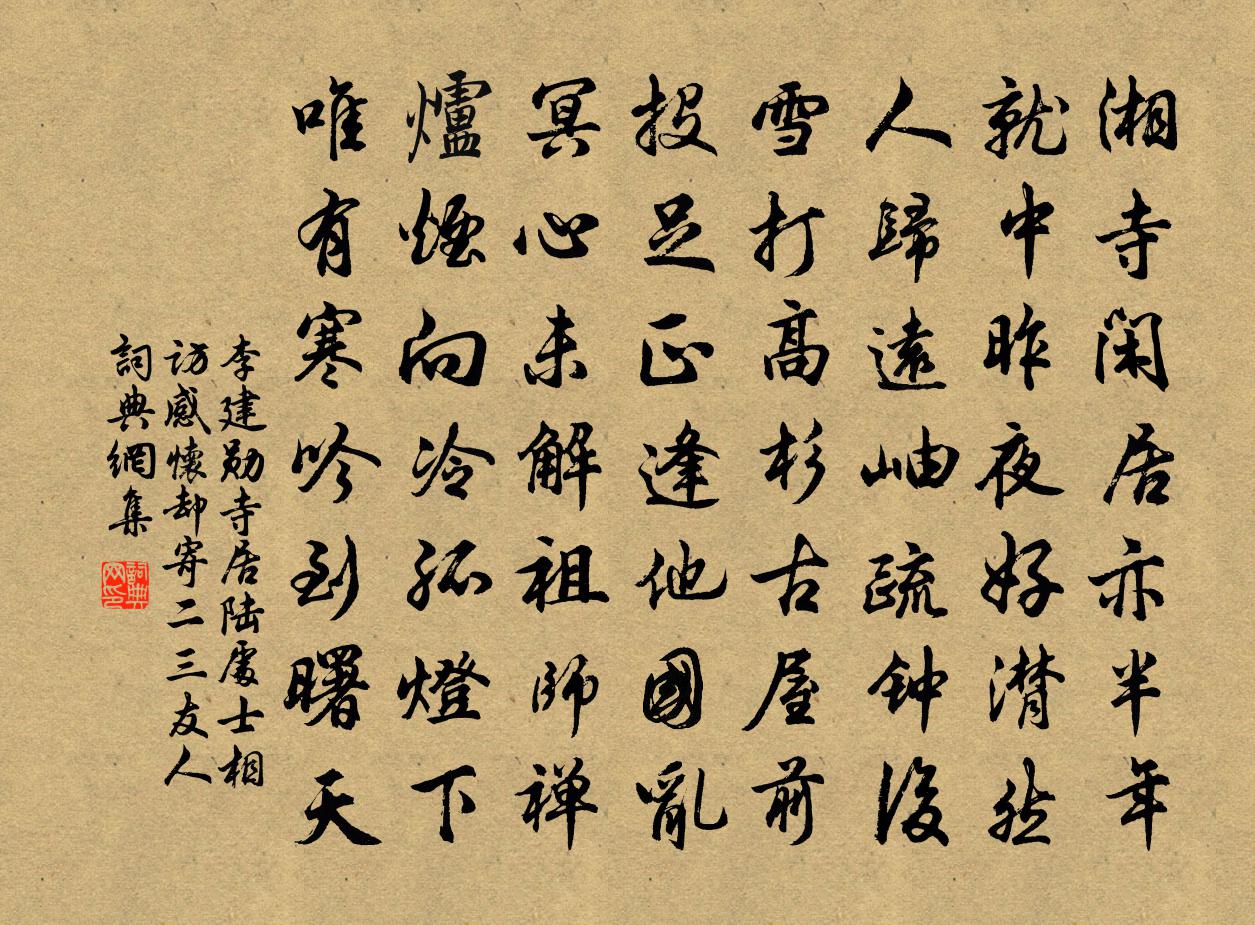 湘寺閑居亦半年
就中昨夜好潸然
人歸遠岫疏钟後
雪打高杉古屋前
投足正逢他國亂
冥心未解祖師禅
爐煙向冷孤燈下
唯有寒吟到曙天
李建勋寺居陆處士相
訪感懷却寄二三友人
詞典網集
詞典
网印